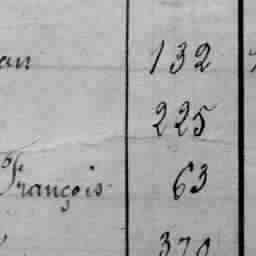 an 132
225
François 63
370